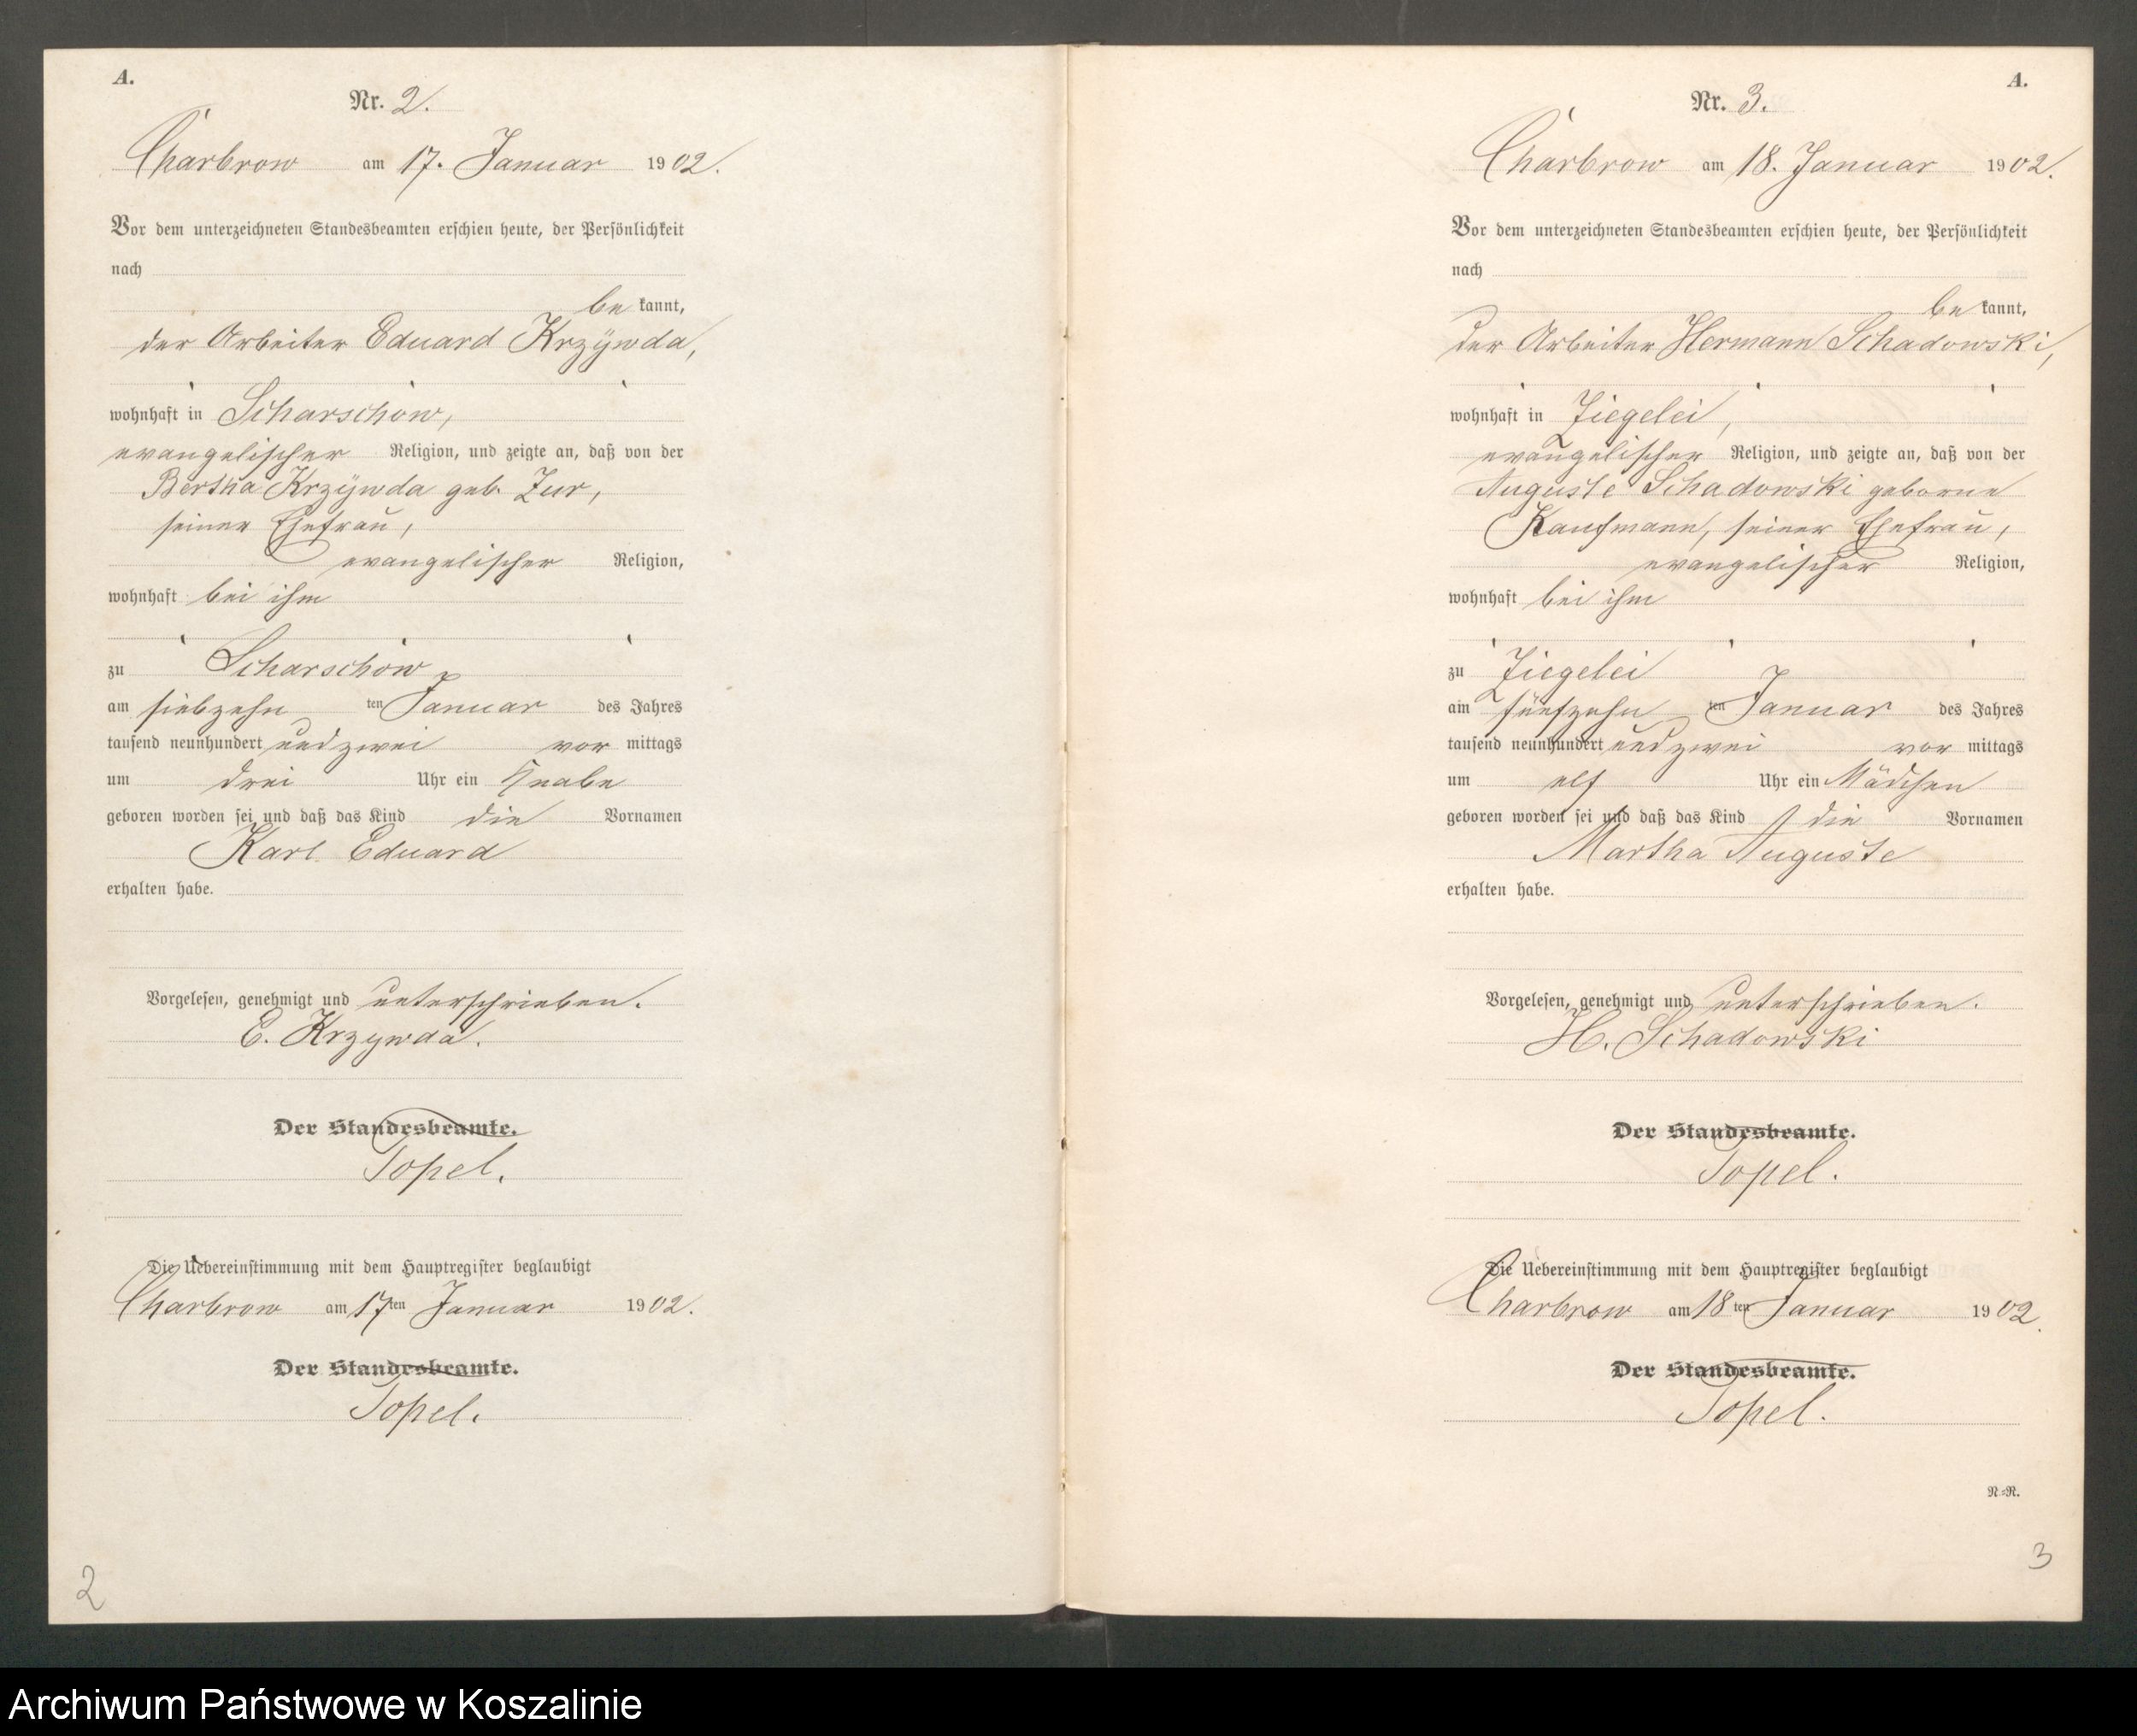 A.
Nr. 2.
Charbrow am 17. Januar 1902.
Vor dem unterzeichneten Standesbeamten erschien heute, der Persönlichkeit
nach
be kannt,
der Arbeiter Eduard Krzÿwda,
wohnhaft in Scharschow,
evangelischer Religion, und zeigte an, daß von der
Bertha Krzÿwda geb. Zur,
seiner Ehefrau,
evangelischer Religion,
wohnhaft bei ihm
zu Scharschow
am siebzehn ten Januar des Jahres
tausend neunhundert und zwei vor mittags
um drei Uhr ein Knabe
geboren worden sei und daß das Kind die Vornamen
Karl Eduard
erhalten habe.
Vorgelesen, genehmigt und unterschrieben.
E. Krzywda.
Der Standesbeamte.
Topel.
Die Uebereinstimmung mit dem Hauptregister beglaubigt
Charbrow am 17ten Januar 1902.
Der Standesbeamte.
Topel.
2
A.
Nr. 3.
Charbrow am 18. Januar 1902.
Vor dem unterzeichneten Standesbeamten erschien heute, der Persönlichkeit
nach
be kannt,
der Arbeiter Hermann Schadowski,
wohnhaft in Ziegelei,
evangelischer Religion, und zeigte an, daß von der
Auguste Schadowski geborne
Kaufmann, seiner Ehefrau,
evangelischer Religion,
wohnhaft bei ihm
zu Ziegelei
am fünfzehn ten Januar des Jahres
tausend neunhundert und zwei vor mittags
um elf Uhr ein Mädchen
geboren worden sei und daß das Kind die Vornamen
Martha Auguste
erhalten habe.
Vorgelesen, genehmigt und unterschrieben.
H. Schadowski
Der Standesbeamte.
Topel.
Die Uebereinstimmung mit dem Hauptregister beglaubigt
Charbrow am 18ten Januar 1902.
Der Standesbeamte.
Topel.
N.=R.
3
Archiwum Państwowe w Koszalinie